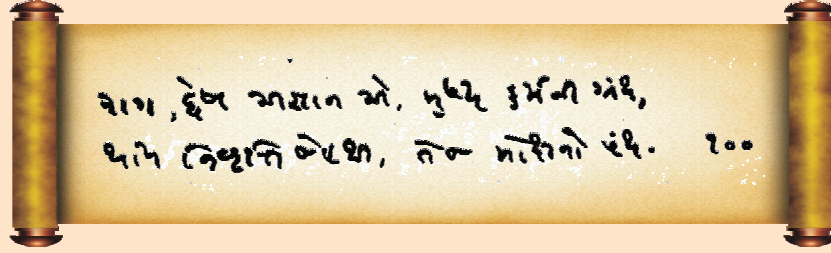 રાગ, દ્વેષ અજ્ઞાન એ, મુખ્ય કર્મની ગ્રંથ,
થાય નિવૃત્તિ જેહથી, તે જ મોક્ષનો પંથ. ૧૦૦